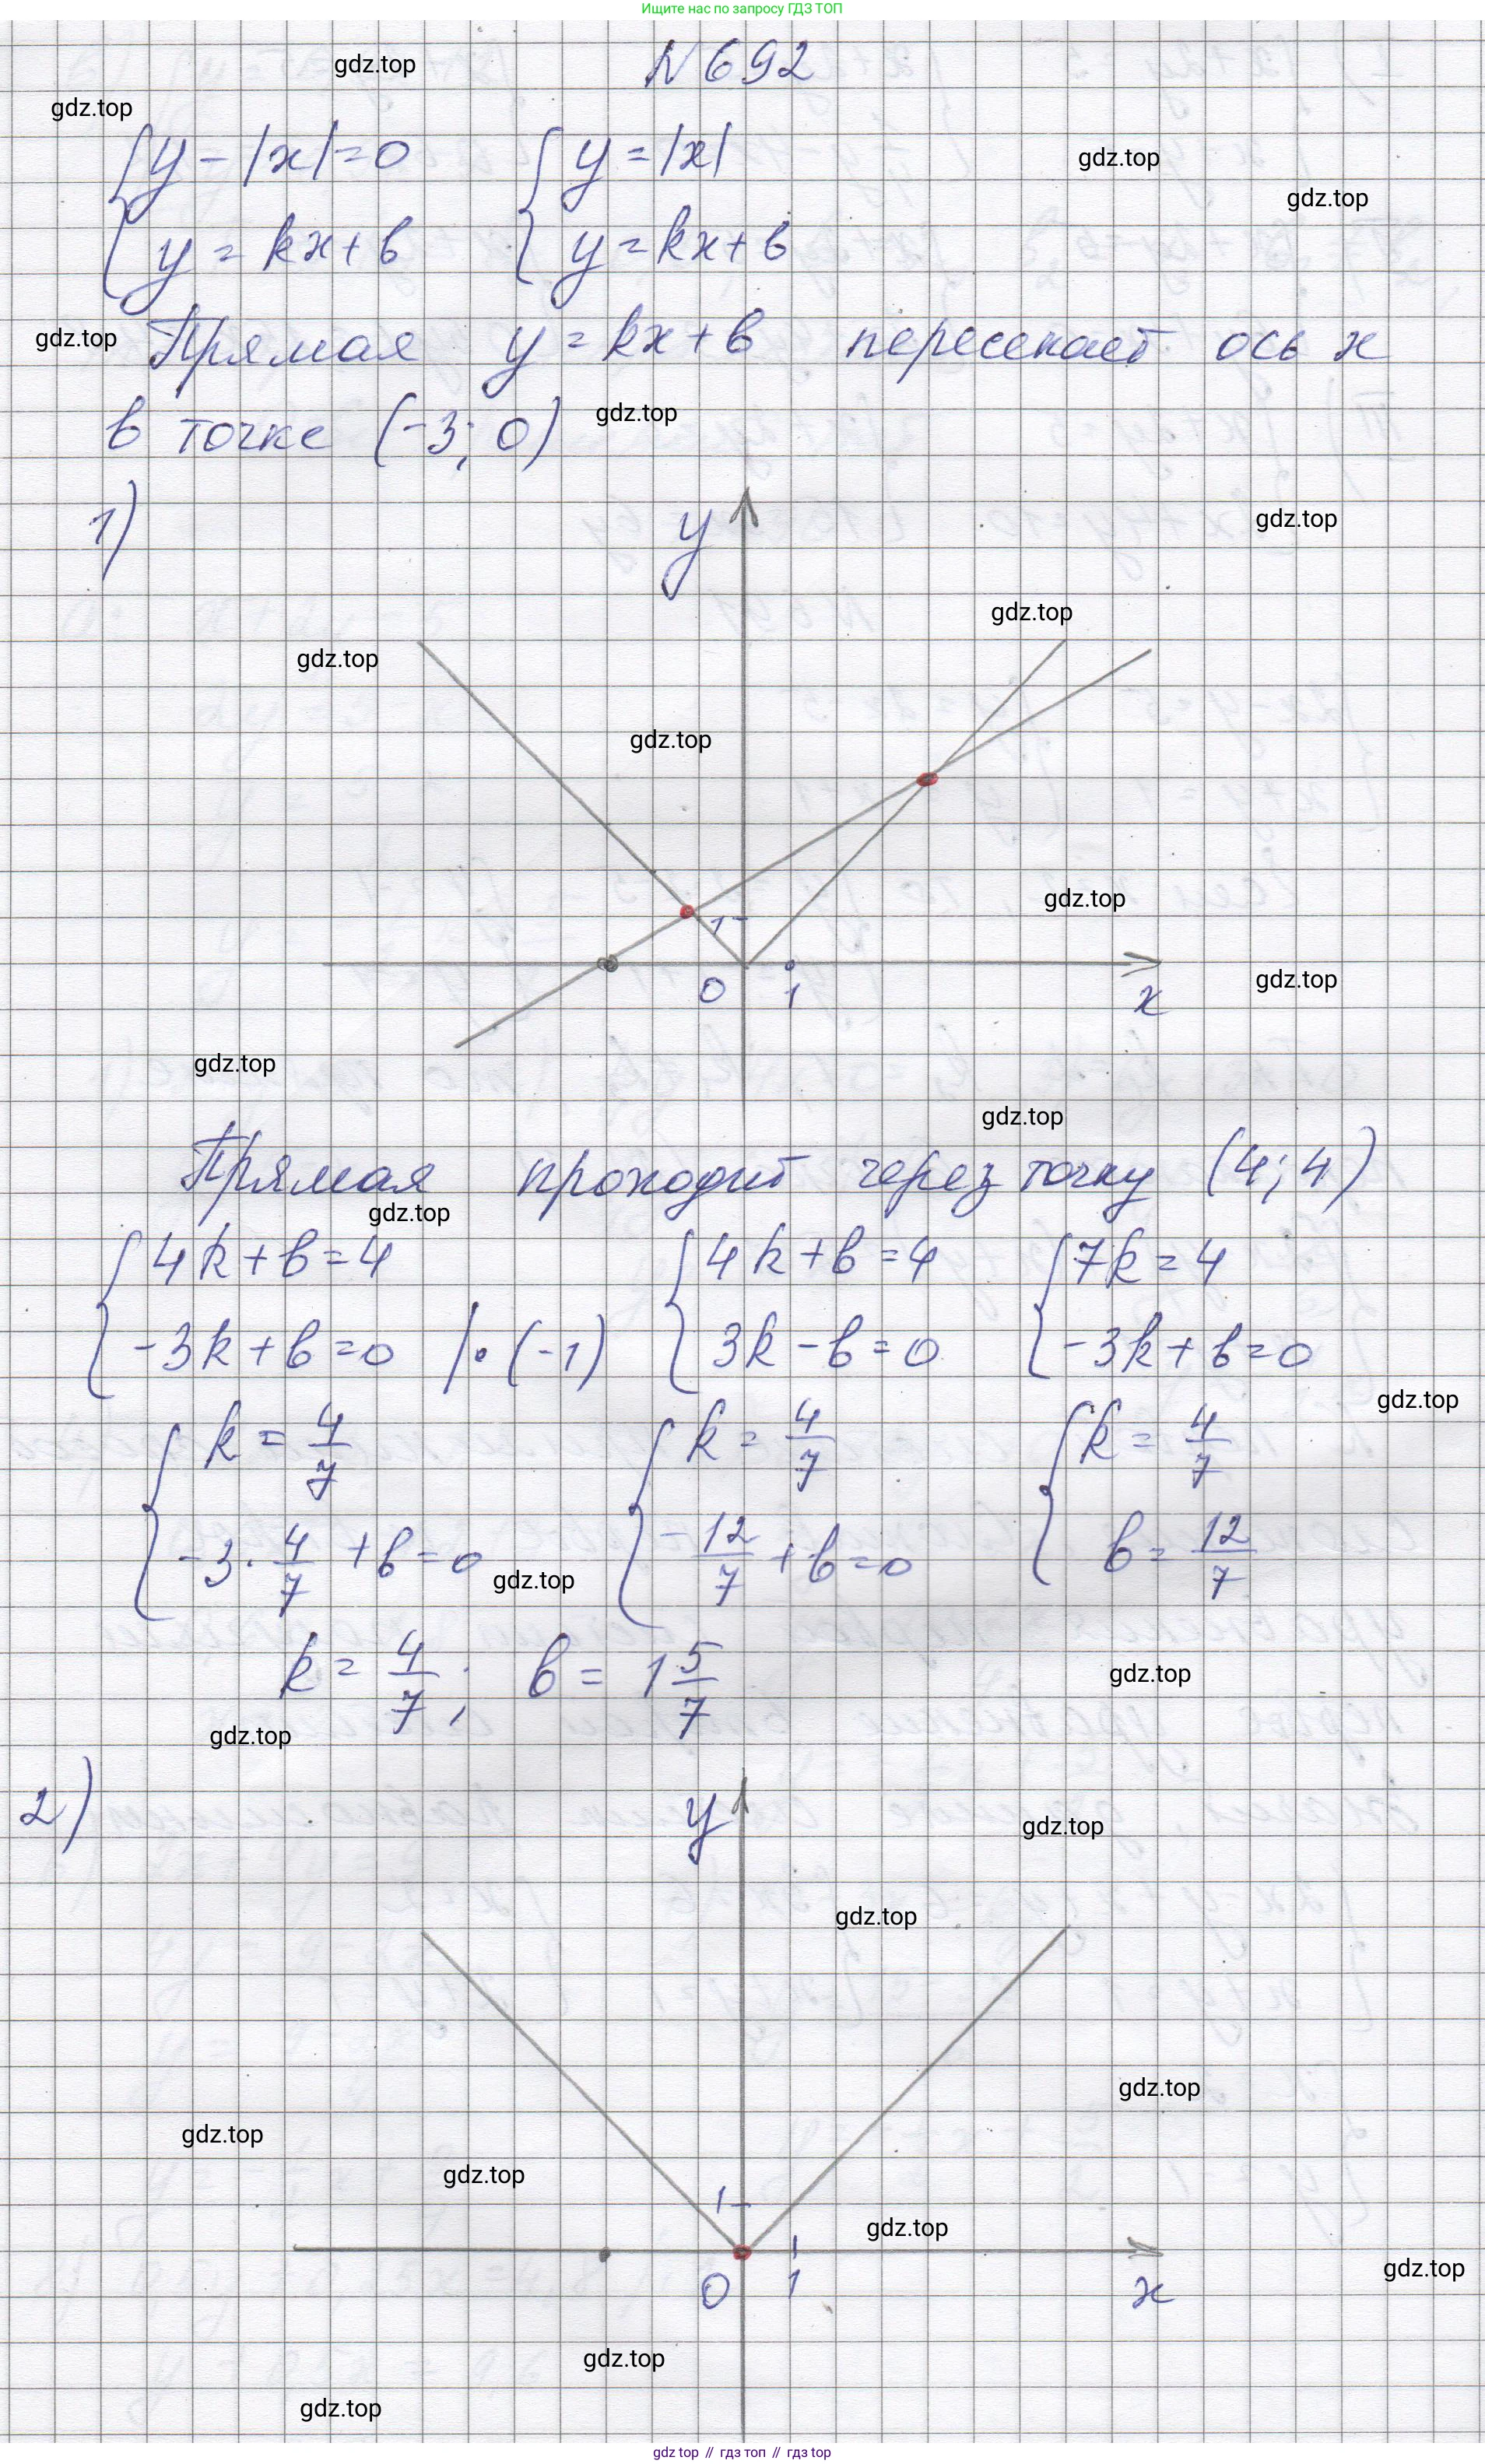 Ищите нас по запросу ГДЗ ТОП
N 692
gdz.top
gdz.top
{ y - |x| = 0 { y = |x|
gdz.top
gdz.top
y = kx + b y = kx + b
gdz.top
Прямая y = kx + b пересекает ось x
в точке (-3; 0)
gdz.top
1)
y
gdz.top
gdz.top
gdz.top
gdz.top
gdz.top
1
0 1 x
gdz.top
gdz.top
gdz.top
Прямая проходит через точку (4; 4)
gdz.top
{ 4k + b = 4 { 4k + b = 4 { 7k = 4
-3k + b = 0 | · (-1) 3k - b = 0 -3k + b = 0
gdz.top
{ k = 4/7 { k = 4/7 { k = 4/7
-3 · 4/7 + b = 0 -12/7 + b = 0 b = 12/7
gdz.top
k = 4/7; b = 1 5/7
gdz.top
gdz.top
2)
y
gdz.top
gdz.top
gdz.top
gdz.top
gdz.top
1
gdz.top
0 1 x
gdz.top
gdz.top
gdz.top
gdz top // гдз топ // gdz.top